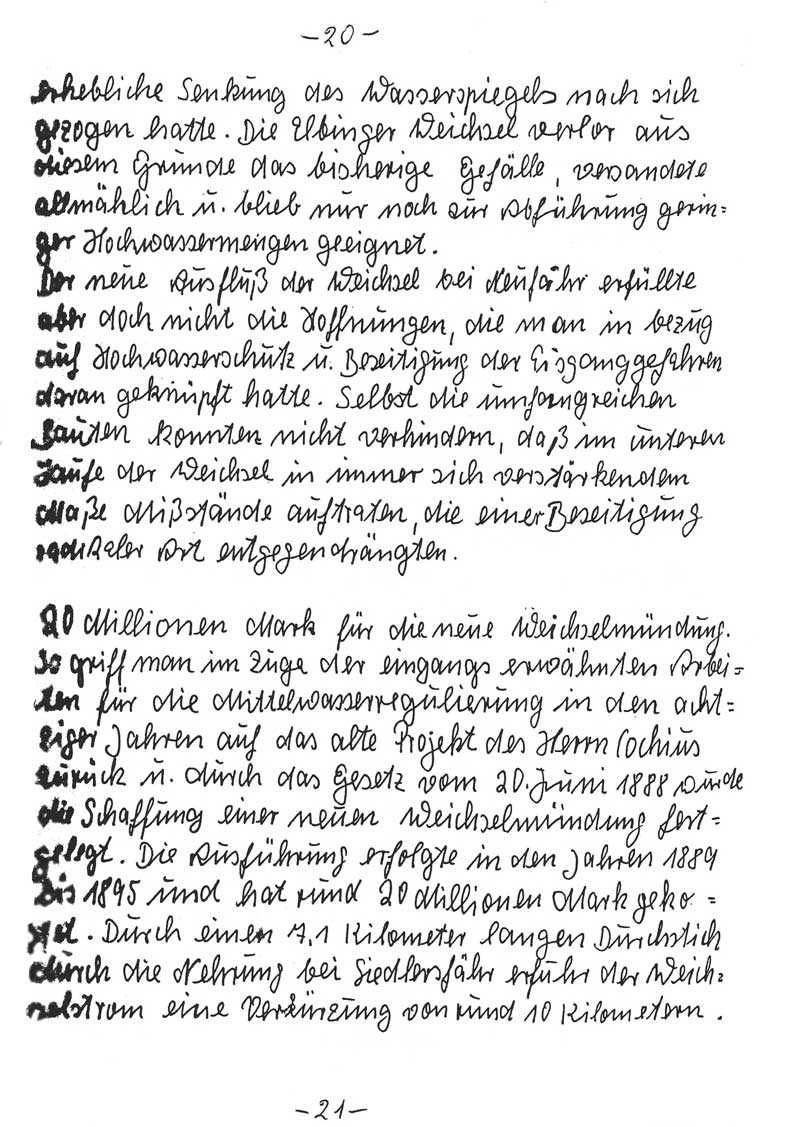 -20-
erhebliche Senkung des Wasserspiegels nach sich
gezogen hatte. Die Elbinger Weichsel verlor aus
diesem Grunde das bisherige Gefälle, versandete
allmählich u. blieb nur noch zur Abführung gerin=
ger Hochwassermengen geeignet.
Der neue Ausfluß der Weichsel bei Neufähr erfüllte
aber doch nicht die Hoffnungen, die man in bezug
auf Hochwasserschutz u. Beseitigung der Eisganggefahren
daran geknüpft hatte. Selbst die umfangreichen
Bauten konnten nicht verhindern, daß im unteren
Laufe der Weichsel in immer sich verstärkendem
Maße Mißstände auftraten, die einer Beseitigung
radikaler Art entgegendrängten.
20 Millionen Mark für die neue Weichselmündung.
So griff man im Zuge der eingangs erwähnten Arbei=
ten für die Mittelwasserregulierung in den acht=
ziger Jahren auf das alte Projekt des Herrn Cochius
zurück u. durch das Gesetz vom 20. Juni 1888 wurde
die Schaffung einer neuen Weichselmündung fest=
gelegt. Die Ausführung erfolgte in den Jahren 1889
bis 1895 und hat rund 20 Millionen Mark geko=
stet. Durch einen 7,1 Kilometer langen Durchstich
durch die Nehrung bei Siedlersfähr erfuhr der Weich=
selstrom eine Verkürzung von rund 10 Kilometern.
-21-